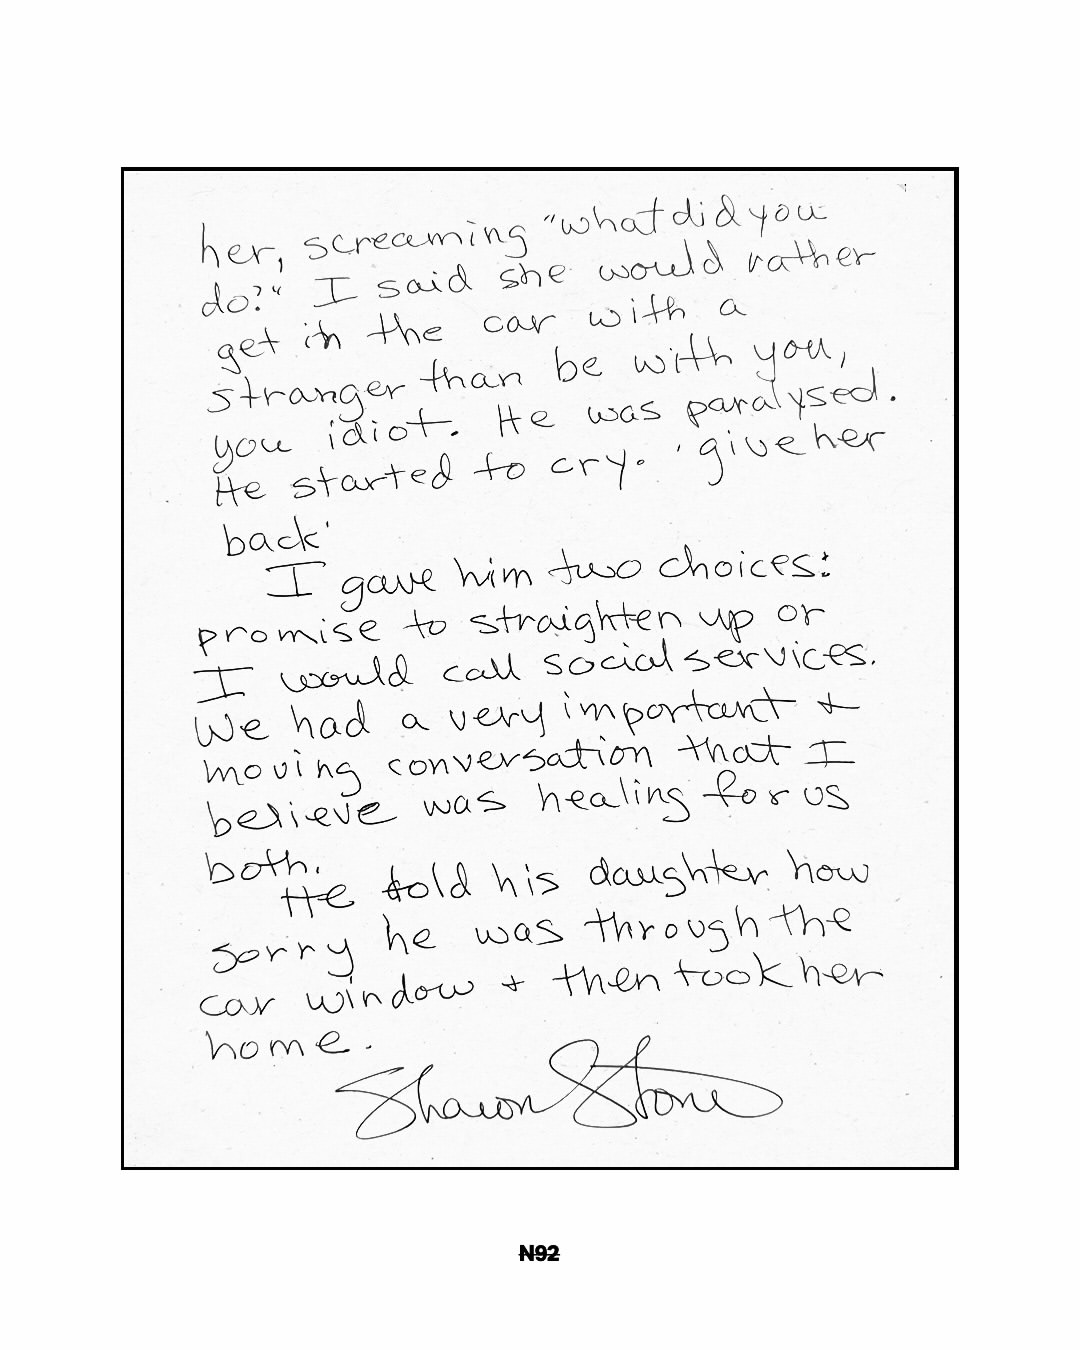 her, screaming "what did you
do?" I said she would rather
get in the car with a
stranger than be with you,
you idiot. He was paralysed.
He started to cry. 'give her
back'
I gave him two choices:
promise to straighten up or
I would call social services.
We had a very important +
moving conversation that I
believe was healing for us
both.
He told his daughter how
sorry he was through the
car window + then took her
home.
Sharon Stone
N92